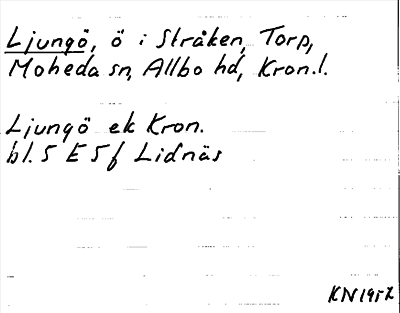 Ljungö, ö i Stråken, Torp,
Moheda sn, Allbo hd, Kron.l.
Ljungö ek Kron.
bl. 5 E 5 f Lidnäs
KN 1952